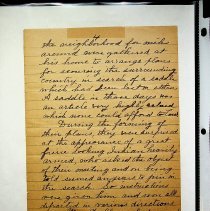 the neighborhood for miles
around were gathered at
his home to arrange plans
for scouring the surrounding
country in search of a saddle
which had been lost or stolen.
A saddle in those days was
an article very highly valued
which none could afford to lose.
During the forming of
their plans, they were surprised
at the appearance of a great
fierce looking Indian heavily
armed, who asked the object
of their meeting and on being
told seemed anxious to join in
the search. So instructions
were given them and soon all
departed in various directions